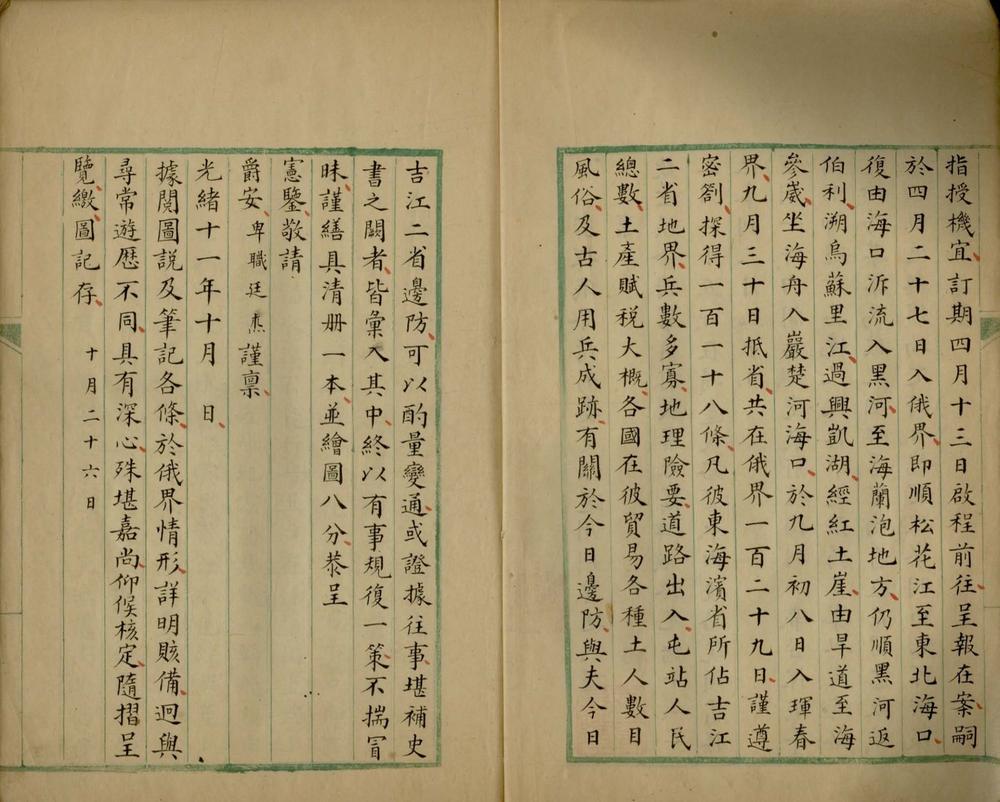 指授機宜訂期四月十三日啟程前往呈報在案嗣
於四月二十七日入俄界即順松花江至東北海口
復由海口泝流入黑河至海蘭泡地方仍順黑河返
伯利溯烏蘇里江過興凱湖經紅土崖由旱道至海
參崴坐海舟入巖楚河海口於九月初八日入琿春
界九月三十日抵省共在俄界一百二十九日謹遵
密劄探得一百一十八條凡彼東海濱省所佔吉江
二省地界兵數多寡地理險要道路出入屯站人民
總數土產賦稅大概各國在彼貿易各種土人數目
風俗及古人用兵成跡有關於今日邊防與夫今日
吉江二省邊防可以酌量變通或證據往事堪補史
書之闕者皆彙入其中終以有事規復一策不揣冒
昧謹繕具清册一本並繪圖八分恭呈
憲鑒敬請
爵安卑職廷杰謹禀
光緒十一年十月 日
據閱圖說及筆記各條於俄界情形詳明賅備迥與
尋常遊歷不同具有深心殊堪嘉尚仰候核定隨摺呈
覽繳圖記存 十月二十六日